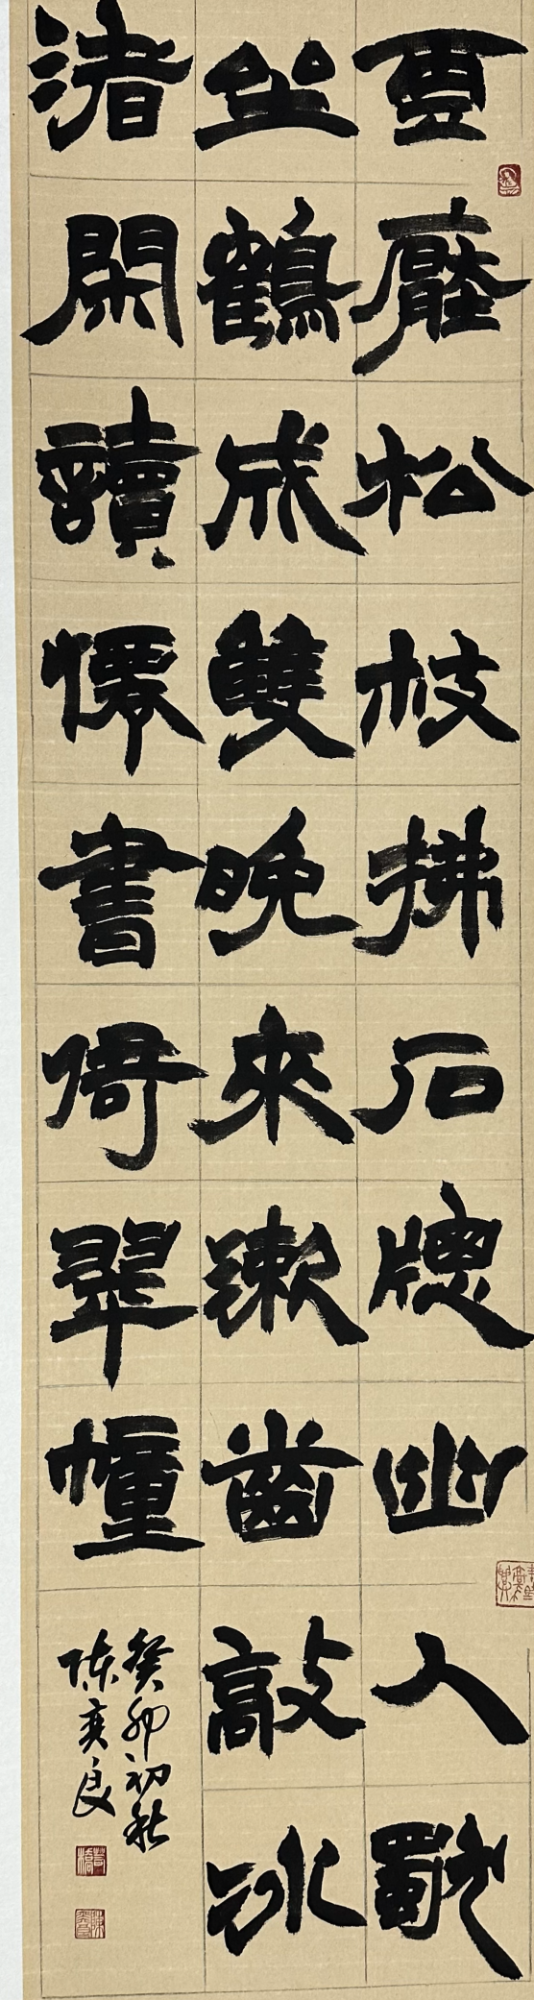 雪壓松枝拂石牕幽人獨
坐鶴成雙晚來漱齒敲冰
渚閑讀僊書倚翠幢
癸卯初秋
陈良